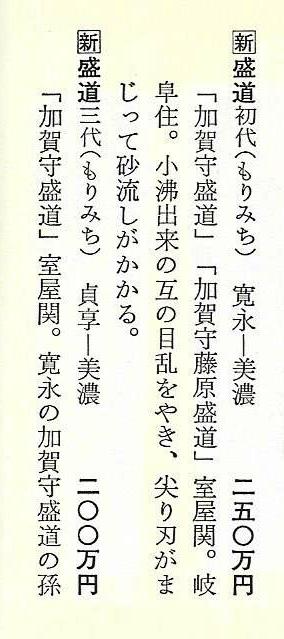 新 盛道初代（もりみち）　寛永—美濃　二五〇万円
「加賀守盛道」「加賀守藤原盛道」室屋関。岐
阜住。小沸出来の互の目乱をやき、尖り刃がま
じって砂流しがかかる。
新 盛道三代（もりみち）　貞享—美濃　二〇〇万円
「加賀守盛道」室屋関。寛永の加賀守盛道の孫